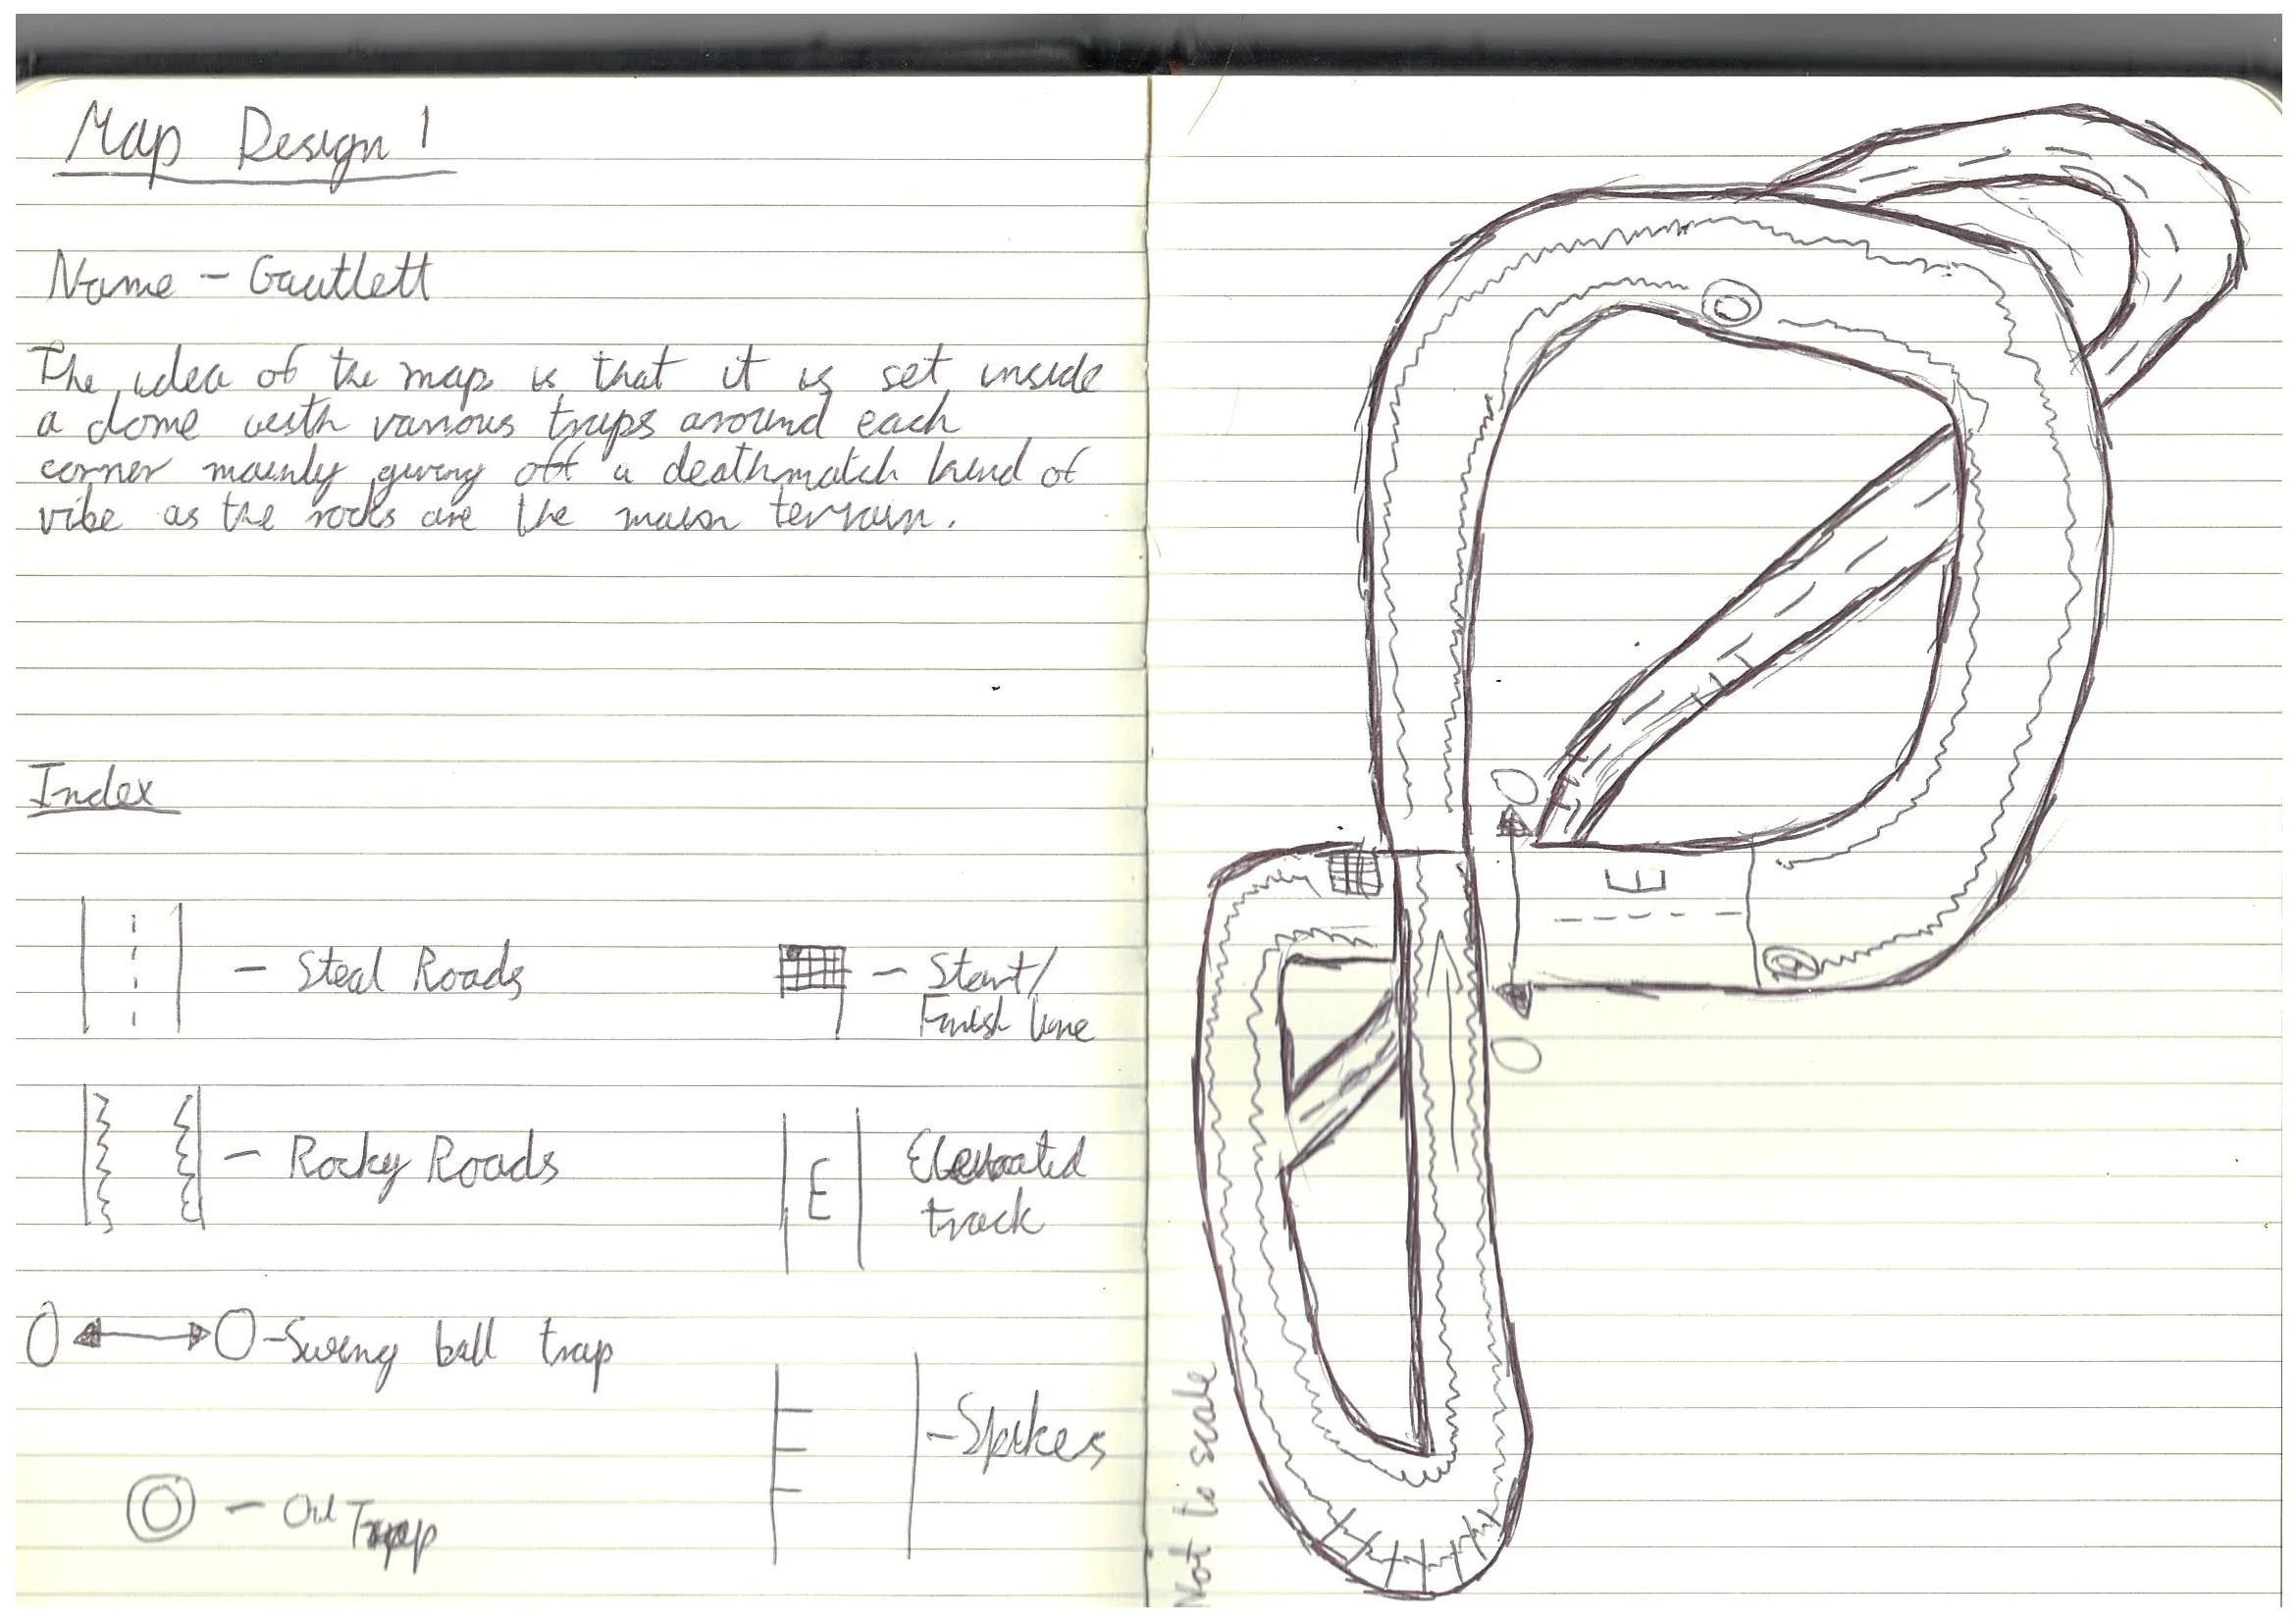 Map Design 1
Name - Gautlett
The idea of the map is that it is set inside
a dome with various traps around each
corner mainly giving off a deathmatch kind of
vibe as the rocks are the main terrain.
Index
- Steal Roads
- Start/
Finish line
- Rocky Roads
E
Elevated
track
- Swing ball trap
- Spikes
- Oil Trap
E
Not to scale